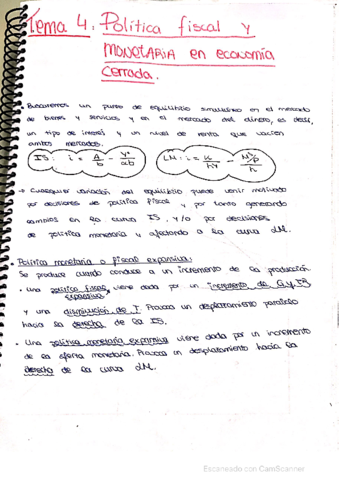 Tema 4: Política fiscal y
MONETARIA en economía
cerrada.
Buscaremos un punto de equilibrio simultáneo en el mercado
de bienes y servicios, y en el mercado del dinero, es decir,
un tipo de interés y un nivel de renta que vacíen
ambos mercados.
IS: i = A/b - Y*/αb
LM: i = K/h Y - M/P/h
→ Cualquier variación del equilibrio puede venir motivado
por decisiones de política fiscal y por tanto generando
cambios en la curva IS, y/o por decisiones
de política monetaria y afectando a la curva LM.
• Política monetaria o fiscal expansiva:
Se produce cuando conduce a un incremento de la producción.
• Una política fiscal expansiva viene dada por un incremento de G y TR
y una disminución de T. Provoca un desplazamiento paralelo
hacia la derecha de la IS.
• Una política monetaria expansiva viene dada por un incremento
de la oferta monetaria. Provoca un desplazamiento hacia la
derecha de la curva LM.
Escaneado con CamScanner